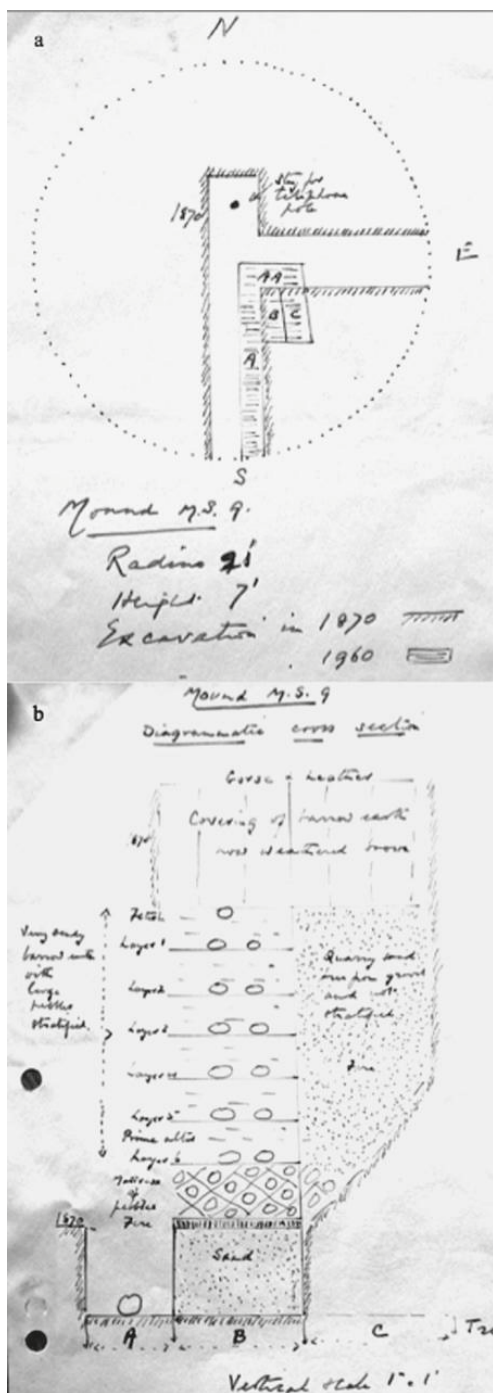 a
N
1870
Stay for
telephone
pole
E
AA
B C
A
S
Mound M.S. 9.
Radius 21'
Height 7'
Excavation in 1870
1960
b
Mound M.S. 9
Diagrammatic cross section
Gorse & heather
1870
Covering of barrow earth
now weathered brown
Very sandy
barrow earth
with
large
pebbles
stratified.
Layer 1
Layer 2
Layer 3
Layer 4
Layer 5
Layer 6
Quarry sand
and not
stratified
Fire
of
pebbles
Fire
1870
Sand
A B C
Vertical scale 1" . 1'